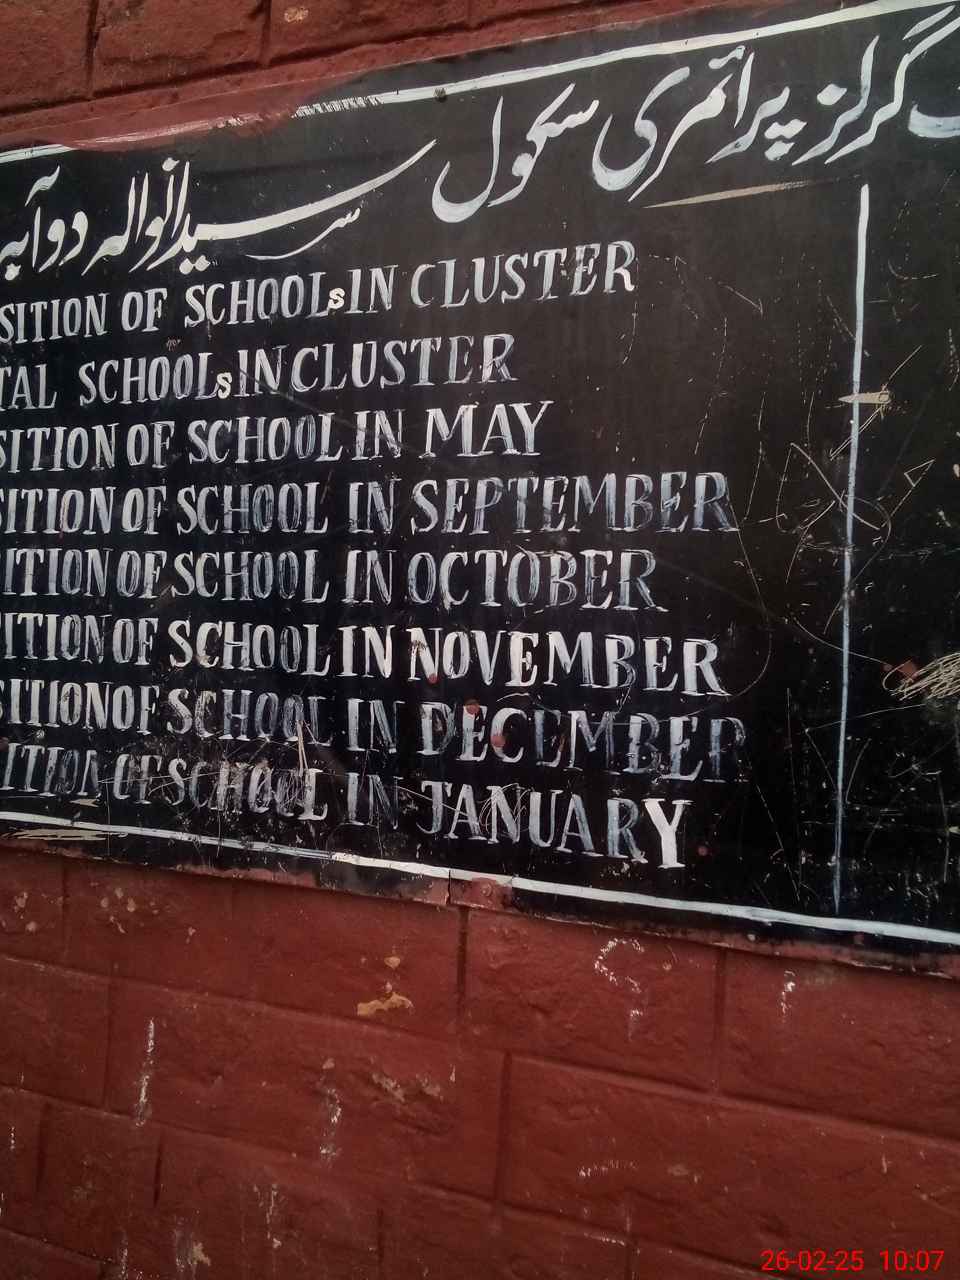 گرلز پرائمری سکول سیدانوالہ دوآبہ
SITION OF SCHOOLs IN CLUSTER
TAL SCHOOLs IN CLUSTER
SITION OF SCHOOL IN MAY
SITION OF SCHOOL IN SEPTEMBER
SITION OF SCHOOL IN OCTOBER
SITION OF SCHOOL IN NOVEMBER
SITION OF SCHOOL IN DECEMBER
ITION OF SCHOOL IN JANUARY
26-02-25 10:07